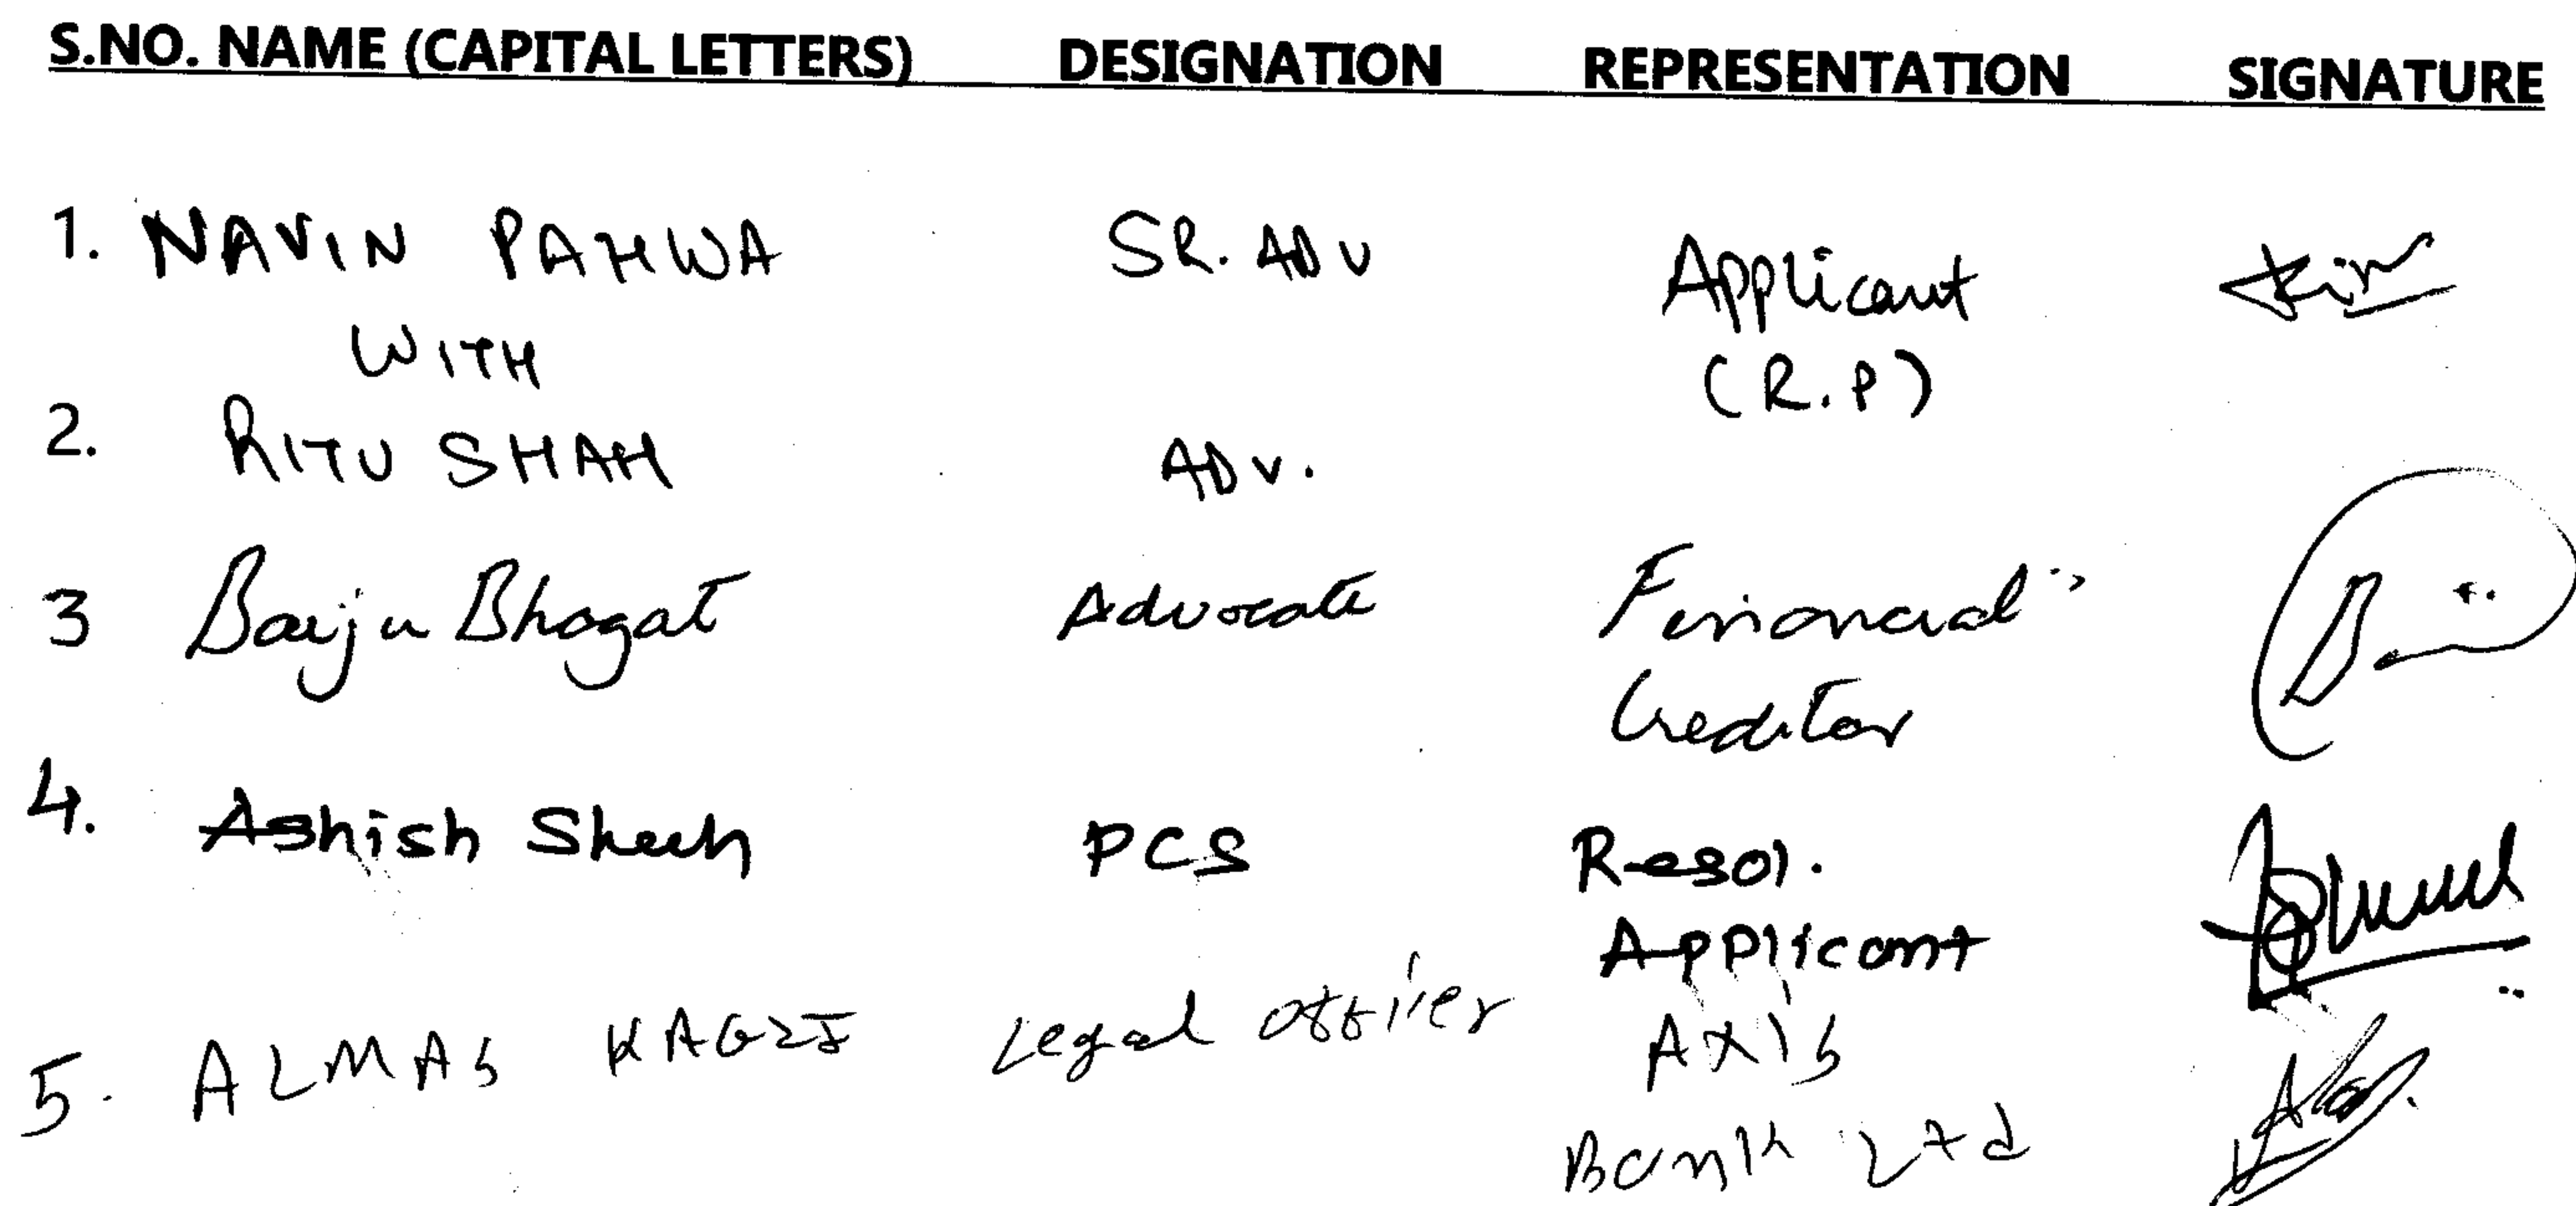 S.NO. NAME (CAPITAL LETTERS) DESIGNATION REPRESENTATION SIGNATURE
1. NAVIN PAHWA SR. ADV Applicant
WITH (R.P)
2. RITU SHAH ADV.
3 Baiju Bhagat Advocate Financial
Creditor
4. Ashish Shah PCS Resol.
Applicant
5. ALMAS KAGZI Legal Officer Axis
Bank Ltd